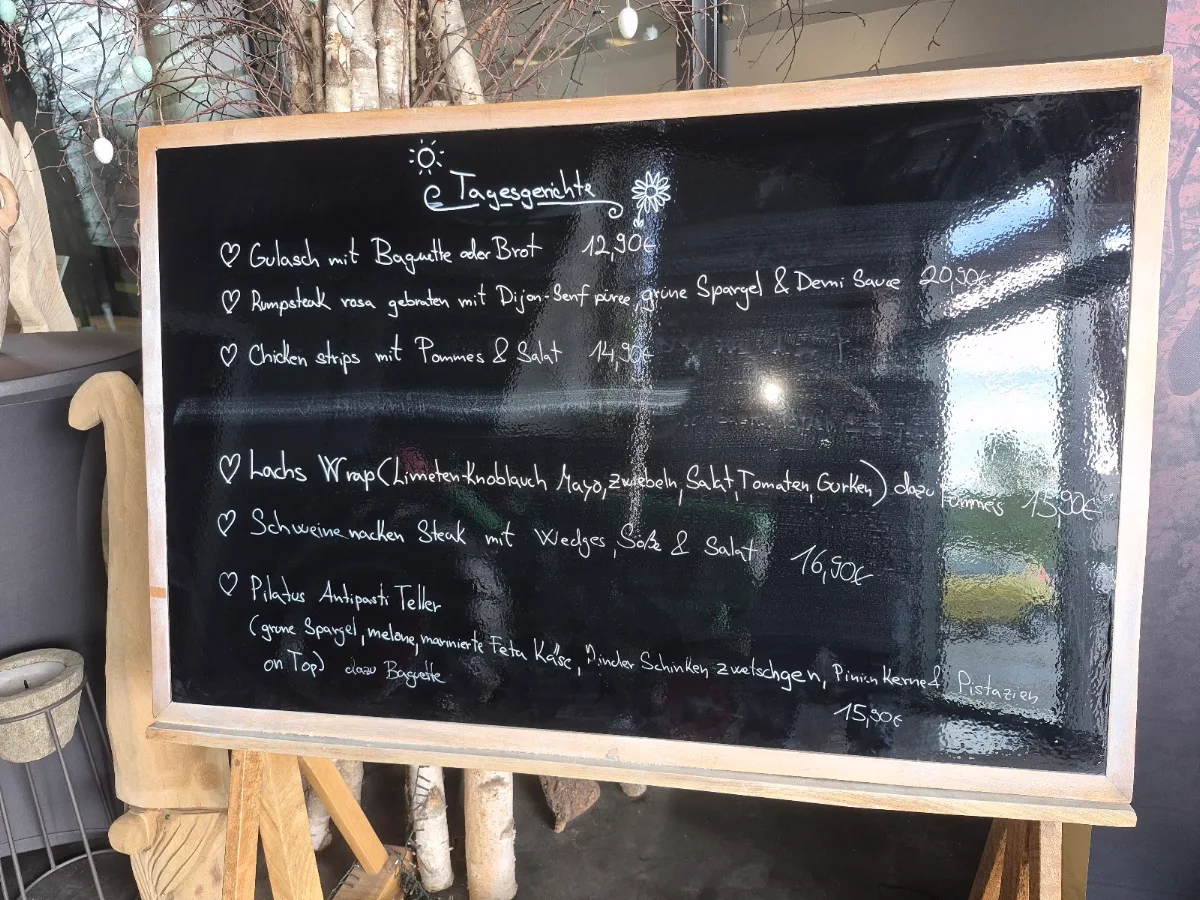 Tagesgerichte
Gulasch mit Baguette oder Brot 12,90€
Rumpsteak rosa gebraten mit Dijon-Senf püree, grüne Spargel & Demi Sauce 20,90€
Chicken strips mit Pommes & Salat 14,90€
Lachs Wrap (Limeten-Knoblauch Mayo, Zwiebeln, Salat, Tomaten, Gurken) dazu Pommes 15,90€
Schweinenacken Steak mit Wedges, Soße & Salat 16,90€
Pilatus Antipasti Teller
(grüne Spargel, melone, marinierte Feta Käse, Rinder Schinken zwetschgen, Pinien Kerne & Pistazien
on Top) dazu Baguette
15,90€